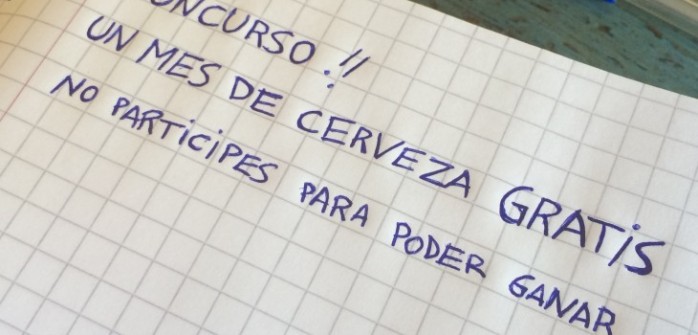 ONCURSO !!
UN MES DE CERVEZA GRATIS
NO PARTICIPES PARA PODER GANAR